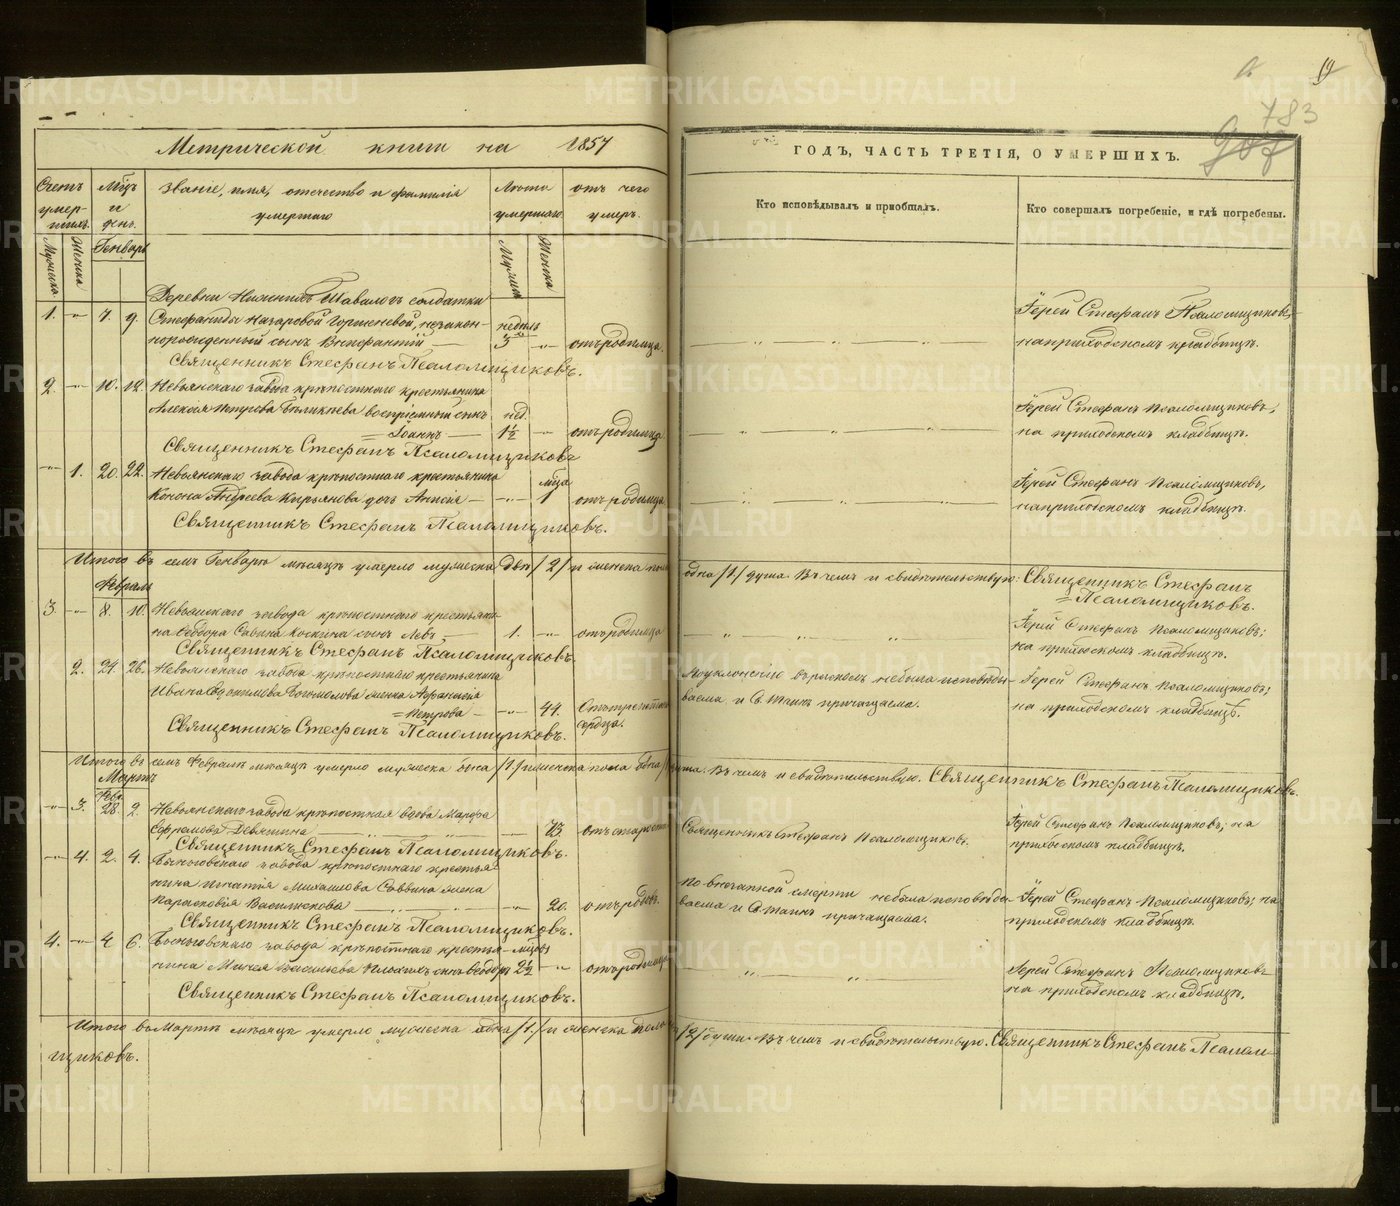 19
783
907
Метрической книги на 1857
ГОДЪ, ЧАСТЬ ТРЕТІЯ, О УМЕРШИХЪ.
Счетъ умерших
Мѣц и день
Званіе, имя, отечество и фамилія умершаго
Лѣта умершаго
отъ чего умеръ.
Кто исповѣдывалъ и пріобщалъ.
Кто совершалъ погребеніе, и гдѣ погребены.
Мужеска
Женска
Генварь
Деревни Нижнихъ Тавологъ солдатки
1. 7. 9. Стефаниды Назаровой незакон- недѣль
норожденный сынъ 3 отъ родимца.
Іерей Стефанъ Псаломщиковъ,
на приходскомъ кладбищѣ.
Священникъ Стефанъ Псаломщиковъ.
2. 10. 12. Невьянскаго завода крѣпостнаго крестьянина
Алексія Петрова сынъ нед.
Іоаннъ 1½ отъ родимца
Іерей Стефанъ Псаломщиковъ,
на приходскомъ кладбищѣ.
Священникъ Стефанъ Псаломщиковъ
1. 20. 22. Невьянскаго завода крѣпостнаго крестьянина мѣся
Конона Андреева Кирьянова дочь Анисія 1 отъ родимца
Іерей Стефанъ Псаломщиковъ,
на приходскомъ кладбищѣ.
Священникъ Стефанъ Псаломщиковъ.
Итого въ семъ Генварѣ мѣсяцѣ умерло мужеска двѣ /2/ и женска пола одна /1/ душа. Въ чемъ и свидѣтельствую: Священникъ Стефанъ
Псаломщиковъ.
Февраль
3 8. 10. Невьянскаго завода крѣпостнаго крестьяни-
на Ѳеодора Савина сынъ Левъ 1. отъ родимца
Іерей Стефанъ Псаломщиковъ;
на приходскомъ кладбищѣ.
Священникъ Стефанъ Псаломщиковъ.
2. 24. 26. Невьянскаго завода крѣпостнаго крестьянина
Ивана Богомолова жена Афанасія
Петрова 44. сердца.
не была исповѣды-
ваема и С. Таинъ причащаема.
Іерей Стефанъ Псаломщиковъ;
на приходскомъ кладбищѣ.
Священникъ Стефанъ Псаломщиковъ.
Итого въ семъ Февралѣ мѣсяцѣ умерло мужеска одна /1/ и женска пола одна /1/ душа. Въ чемъ и свидѣтельствую. Священникъ Стефанъ Псаломщиковъ.
Мартъ
Февр.
3. 28. 2. Невьянскаго завода крѣпостная вдова Марфа
Ефремова Девяткина 73. отъ старости
Священникъ Стефанъ Псаломщиковъ.
Іерей Стефанъ Псаломщиковъ; на
приходскомъ кладбищѣ.
Священникъ Стефанъ Псаломщиковъ.
4. 2. 4. Быньговскаго завода крѣпостнаго крестья-
нина Игнатія Михайлова Саввина жена
Парасковія Василискова 20. отъ родовъ.
По внезапной смерти не была исповѣды-
ваема и С. Таинъ причащаема.
Іерей Стефанъ Псаломщиковъ; на
приходскомъ кладбищѣ.
Священникъ Стефанъ Псаломщиковъ.
4. 4 6. Быньговскаго завода крѣпостнаго крестья- мѣсяц
нина Васильева сынъ Ѳеодоръ 2½ отъ родимца
Іерей Стефанъ Псаломщиковъ
на приходскомъ кладбищѣ.
Священникъ Стефанъ Псаломщиковъ.
Итого въ Мартѣ мѣсяцѣ умерло мужеска одна /1/ и женска пола /2/ души. Въ чемъ и свидѣтельствую. Священникъ Стефанъ Псалом-
щиковъ.
METRIKI.GASO-URAL.RU